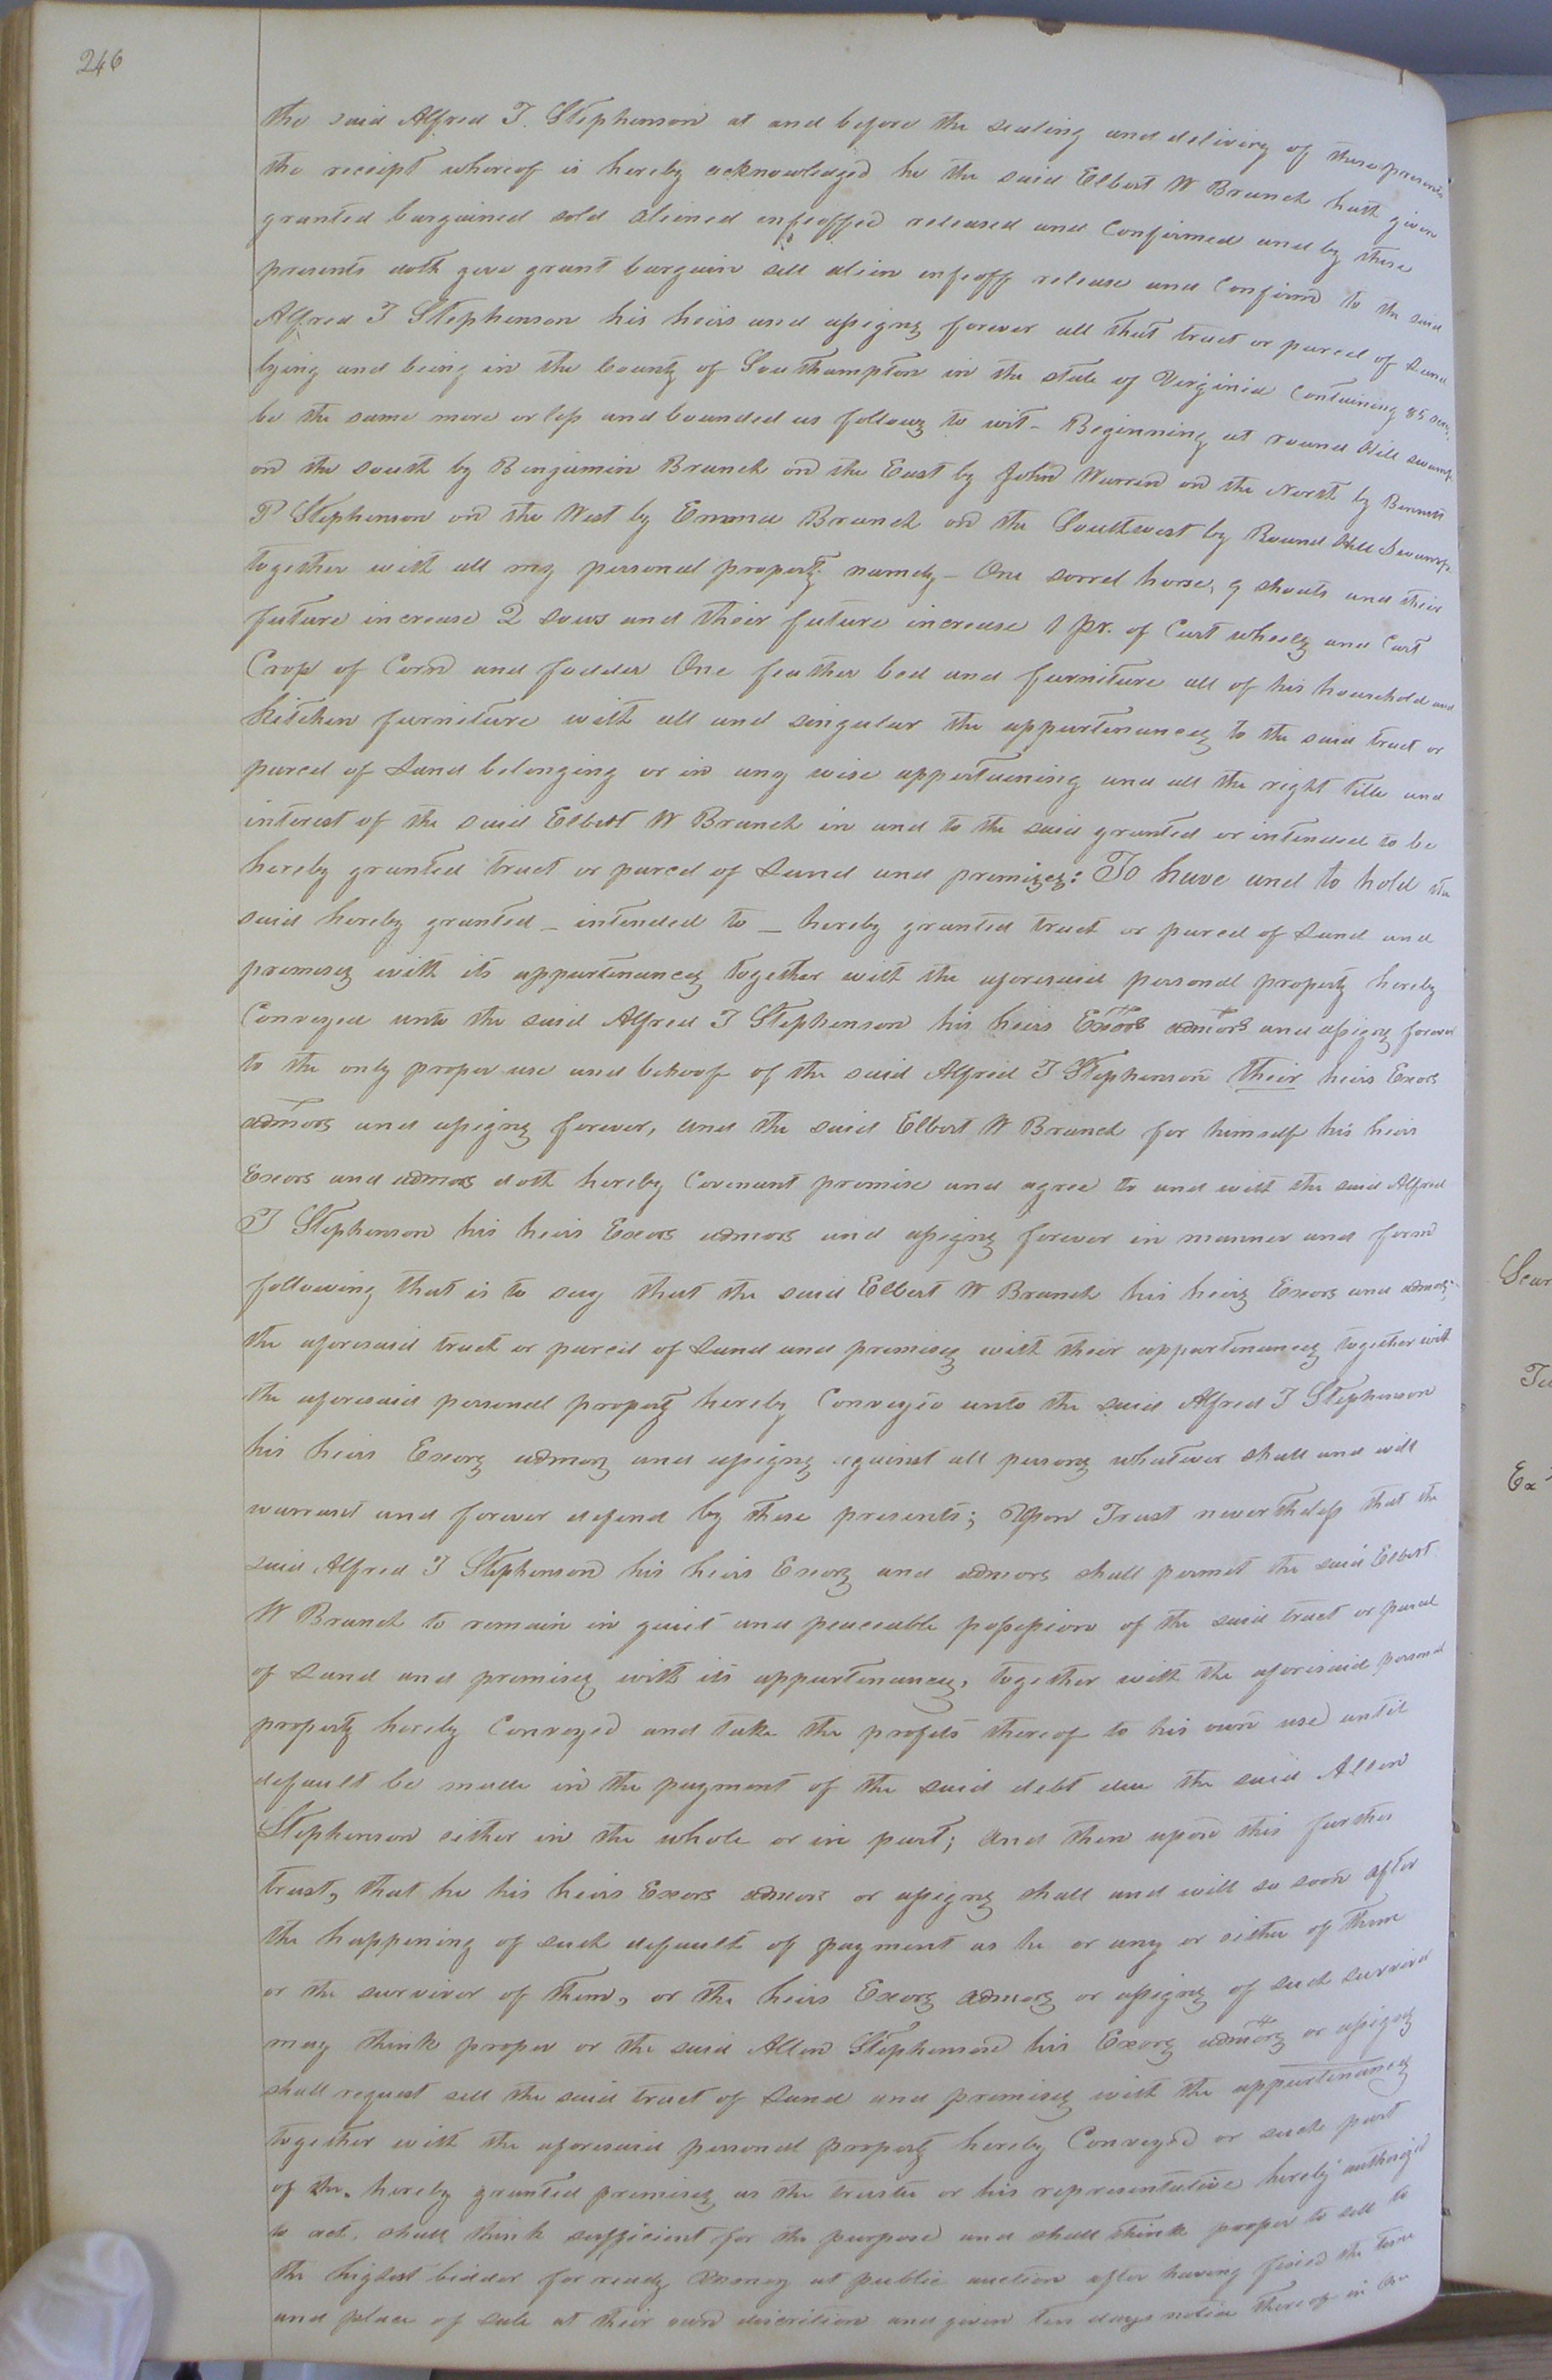 246
the said Alfred T. Stephenson at and before the sealing and delivery of these presents
the receipt whereof is hereby acknowledged he the said Elbert W Branch hath given
granted bargained sold aliened enfeoffed released and Confirmed and by these
presents doth give grant bargain sell alien enfeoff release and Confirm to the said
Alfred T Stephenson his heirs and assigns forever all that tract or parcel of Land
lying and being in the County of Southampton in the state of Virginia Containing 85 acres
be the same more or less and bounded as follows to wit - Beginning at round Hill swamp
on the south by Benjamin Branch on the East by John Warren on the North by Bennett
P Stephenson on the West by Emma Branch on the Southwest by Round Hill Swamp
together with all my personal property namely - One sorrel horse, 9 shoats and their
future increase 2 sows and their future increase 1 pr. of Cart wheels and Cart
Crop of Corn and fodder One feather bed and furniture all of his household and
Kitchen furniture with all and singular the appurtenances to the said tract or
parcel of Land belonging or in any wise appertaining and all the right title and
interest of the said Elbert W Branch in and to the said granted or intended to be
hereby granted tract or parcel of Land and premises: To have and to hold the
said hereby granted _ intended to _ hereby granted tract or parcel of Land and
premises with its appurtenances together with the aforesaid personal property hereby
Conveyed unto the said Alfred T Stephenson his heirs Exors admors and assigns forever
to the only proper use and behoof of the said Alfred T Stephenson their heirs Exors
admors and assigns forever, and the said Elbert W Branch for himself his heirs
Exors and admors doth hereby Covenant promise and agree to and with the said Alfred
T Stephenson his heirs Exors admors and assigns forever in manner and form
following that is to say that the said Elbert W Branch his heirs Exors and admors
the aforesaid tract or parcel of Land and premises with their appurtenances together with
the aforesaid personal property hereby Conveyed unto the said Alfred T Stephenson
his heirs Exors admors and assigns against all persons whatever shall and will
warrant and forever defend by these presents; Upon Trust nevertheless that the
said Alfred T Stephenson his heirs Exors and admors shall permit the said Elbert
W Branch to remain in quiet and peaceable possession of the said tract or parcel
of Land and premises with its appurtenances, together with the aforesaid personal
property hereby Conveyed and take the profits thereof to his own use until
default be made in the payment of the said debt due the said Allen
Stephenson either in the whole or in part; and then upon this further
trust, that he his heirs Exors admors or assigns shall and will so soon after
the happening of such default of payment as he or any or either of them
or the survivor of them, or the heirs Exors admors or assigns of such survivor
may think proper or the said Allen Stephenson his Exors admors or assigns
shall request sell the said tract of Land and premises with the appurtenances
together with the aforesaid personal property hereby Conveyed or such part
of the hereby granted premises as the trustee or his representative hereby authorized
to act. shall think sufficient for the purpose and shall think proper to sell to
the highest bidder for ready money at public auction after having fixed the time
and place of sale at their own discretion and given ten days notice thereof in
Ex